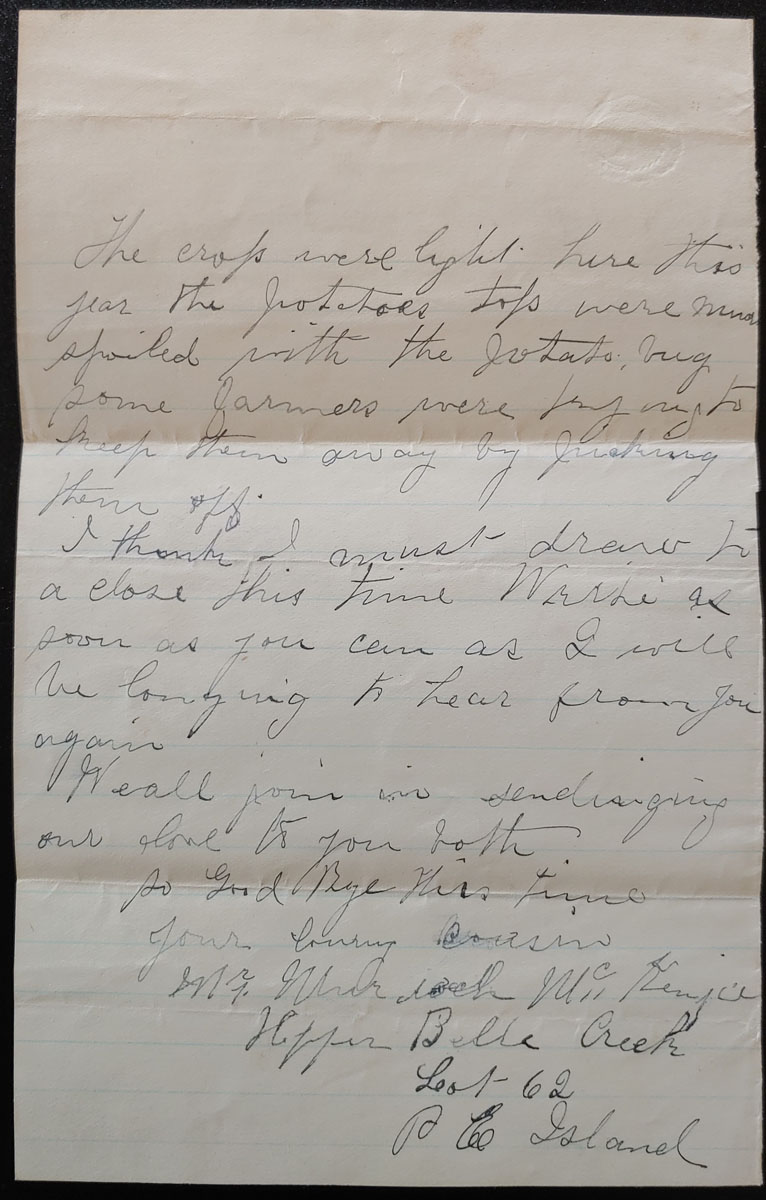 The crops were light here this
year the potatoes tops were much
spoiled with the potato, bug
some farmers were trying to
keep them away by picking
them off.
I think I must draw to
a close this time Write as
soon as you can as I will
be longing to hear from you
again
We all join in sendinging
our love to you both
so Good Bye this time
your loving cousin
Mr. Murdoch McKenzie
Upper Belle Creek
Lot 62
P E Island